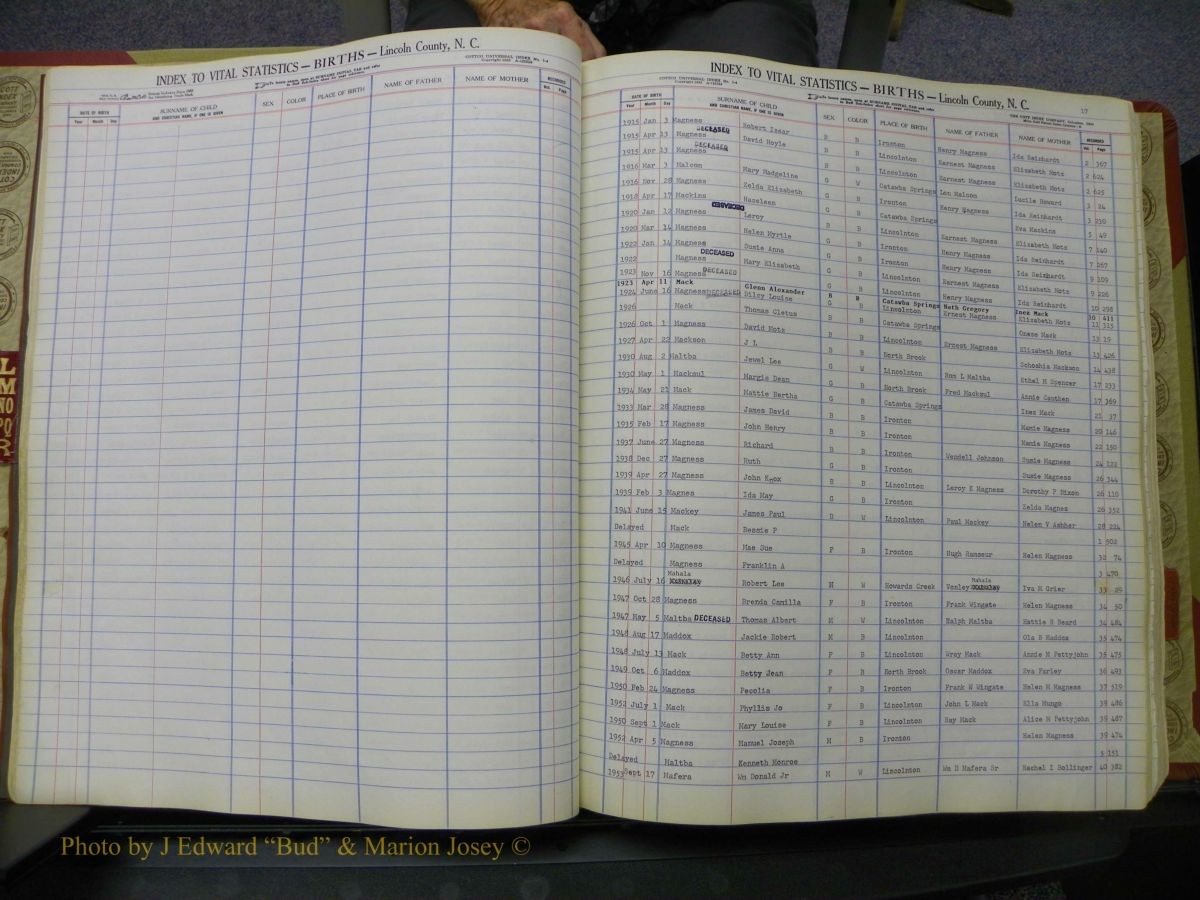 INDEX TO VITAL STATISTICS — BIRTHS — Lincoln County, N. C.
COTTON UNIVERSAL INDEX No. 1-4
DATE OF BIRTH SURNAME OF CHILD SEX COLOR PLACE OF BIRTH NAME OF FATHER NAME OF MOTHER RECORDED
Year Month Day AND CHRISTIAN NAME, IF ONE IS GIVEN Vol. Page
INDEX TO VITAL STATISTICS — BIRTHS — Lincoln County, N. C.
17
DATE OF BIRTH SURNAME OF CHILD SEX COLOR PLACE OF BIRTH NAME OF FATHER NAME OF MOTHER RECORDED
Year Month Day AND CHRISTIAN NAME, IF ONE IS GIVEN Vol. Page
1915 Jan 3 Magness Robert Issar B B Ironton Henry Magness Ida Reinhardt 2 367
1915 Apr 13 Magness DECEASED David Hoyle B B Lincolnton Earnest Magness Elizabeth Motz 2 624
1915 Apr 13 Magness DECEASED B B Lincolnton Earnest Magness Elizabeth Motz 2 625
1916 Mar 3 Malcom Mary Madgeline G W Catawba Springs Lon Malcom Lucile Howard 3 24
1916 Nov 28 Magness Zelda Elizabeth G B Ironton Henry Magness Ida Reinhardt 3 230
1918 Apr 17 Mackins Hazeleen G B Catawba Springs Eva Mackins 5 49
1920 Jan 12 Magness DECEASED Leroy B B Lincolnton Earnest Magness Elizabeth Motz 7 140
1920 Mar 14 Magness Helen Myrtle G B Ironton Henry Magness Ida Reinhardt 7 267
1922 Jan 14 Magness Susie Anna G B Ironton Henry Magness Ida Reinhardt 9 109
1922 Magness DECEASED Mary Elizabeth G B Lincolnton Earnest Magness Elizabeth Motz 9 226
1923 Nov 16 Magness DECEASED G B Lincolnton Henry Magness Ida Reinhardt 10 298
1923 Apr 11 Mack Glenn Alexander B B Catawba Springs Nath Gregory Inez Mack 10 411
1924 June 16 Magness DECEASED Dilsy Louise G B Lincolnton Ernest Magness Elizabeth Motz 11 315
1926 Mack Thomas Cletus B B Catawba Springs Onzae Mack 13 19
1926 Oct 1 Magness David Motz B B Lincolnton Ernest Magness Elizabeth Motz 13 426
1927 Apr 22 Mackson J L B B North Brook 14 438
1930 Aug 2 Maltba Jewel Lee G W Lincolnton Ethel M Spencer 17 233
1930 May 1 Mackoul Margie Dean G B North Brook Fred Mackoul Annie Cauthen 17 369
1934 May 21 Mack Mattie Bertha G B Catawba Springs Inez Mack 21 37
1933 Mar 28 Magness James David B B Ironton Mamie Magness 20 146
1935 Feb 17 Magness John Henry B B Ironton Mamie Magness 22 150
1937 June 27 Magness Richard B B Ironton Wendell Johnson Susie Magness 24 222
1938 Dec 27 Magness Ruth G B Ironton Susie Magness 26 344
1939 Apr 27 Magness John Knox B B Lincolnton Leroy E Magness Dorothy P Nixon 26 110
1939 Feb 3 Magnes Ida May G B Ironton Zelda Magnes 26 352
1941 June 15 Mackey James Paul B W Lincolnton Paul Mackey Helen V Ashber 28 224
Delayed Mack Bessie P 1 502
1945 Apr 10 Magness Mae Sue F B Ironton Hugh Ramseur Helen Magness 32 74
Delayed Magness Franklin A 3 470
Mahala Mahala
1946 July 16 Robert Lee M W Howards Creek Vanley Iva M Grier 33 29
1947 Oct 28 Magness Brenda Camilla F B Ironton Frank Wingate Helen Magness 34 50
1947 May 5 Maltba DECEASED Thomas Albert M W Lincolnton Ralph Maltba Hattie B Beard 34 484
1948 Aug 17 Maddox Jackie Robert M B Lincolnton Ola B Maddox 35 474
1948 July 13 Mack Betty Ann F B Lincolnton Wray Mack Annie M Pettyjohn 35 475
1949 Oct 6 Maddox Betty Jean F B North Brook Oscar Maddox Eva Farley 36 491
1950 Feb 24 Magness Pecolia F B Ironton Frank W Wingate Helen M Magness 37 519
1952 July 1 Mack Phyllis Jo F B Lincolnton John L Mack Ella Mungo 39 486
1950 Sept 1 Mack Mary Louise F B Lincolnton Ray Mack Alice M Pettyjohn 39 487
1952 Apr 5 Magness Manuel Joseph M B Ironton Helen Magness 39 474
Delayed Maltba Kenneth Monroe 5 151
1953 Sept 17 Mafera Wm Donald Jr M W Lincolnton Wm D Mafera Sr Rachel I Bollinger 40 382
Photo by J Edward “Bud” & Marion Josey ©